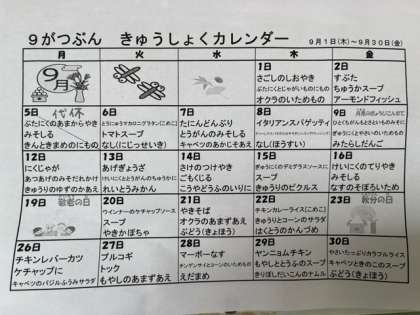 9がつぶん きゅうしょくカレンダー 9月1日(木)～9月30日(金)
月 火 水 木 金
9月
1日
さごしのしおやき
ぶたにくとじゃがいものにもの
オクラのいためもの
2日
すぶた
ちゅうかスープ
アーモンドフィッシュ
5日 代休
ぶたにくのあまからやき
みそしる
きんときまめのにもの
6日
トマトスープ
なし(にじっせいき)
7日
たにんどんぶり
とうがんのみそしる
キャベツのあじかじあえ
8日
イタリアンスパゲッティ
なし(ほうすい)
9日
みたらしだんご
12日
にくじゃが
あつあげのみそだれかけ
きゅうりのゆずのかあえ
13日
あげぎょうざ
れいとうみかん
14日
さけのつけやき
ごもくじる
こうやどうふのいりに
15日
きゅうりのピクルス
16日
けいにくのてりやき
みそしる
なすのそぼろいため
19日 敬老の日
20日
ウインナーのケチャップソース
スープ
やきかぼちゃ
21日
やきそば
オクラのあまずあえ
ぶどう(きょほう)
22日
チキンカレーライス(こめこ)
きゅうりとコーンのサラダ
はくとうのかんづめ
23日 秋分の日
26日
チキンレバーカツ
ケチャップに
キャベツのバジルふうみサラダ
27日
プルコギ
トック
もやしのあまずあえ
28日
マーボーなす
えだまめ
29日
ヤンニョムチキン
もやしととうふのスープ
きりぼしだいこんのナムル
30日
やさいたっぷりカラフルライス
キャベツときのこのスープ
ぶどう(きょほう)